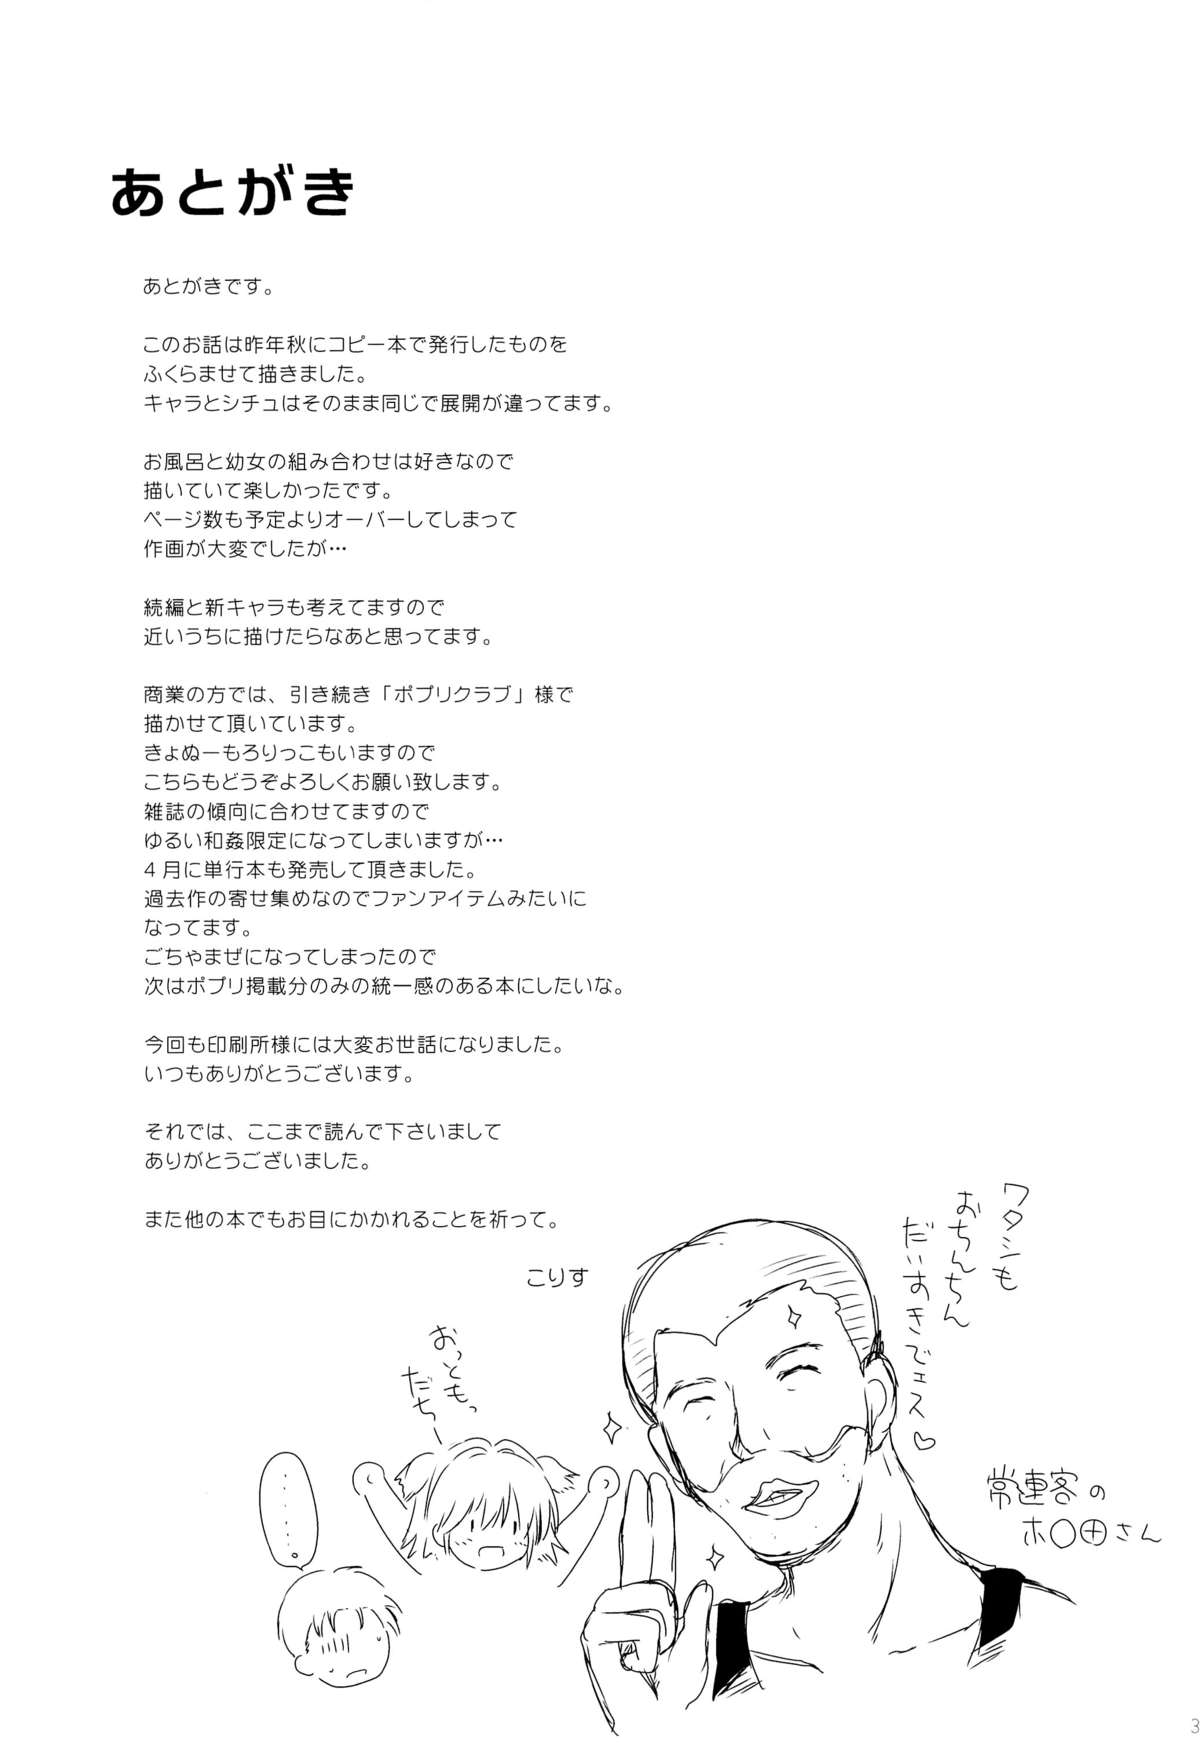 あとがき
あとがきです。
このお話は昨年秋にコピー本で発行したものを
ふくらませて描きました。
キャラとシチュはそのまま同じで展開が違ってます。
お風呂と幼女の組み合わせは好きなので
描いていて楽しかったです。
ページ数も予定よりオーバーしてしまって
作画が大変でしたが…
続編と新キャラも考えてますので
近いうちに描けたらなあと思ってます。
商業の方では、引き続き「ポプリクラブ」様で
描かせて頂いています。
きょぬーもろりっこもいますので
こちらもどうぞよろしくお願い致します。
雑誌の傾向に合わせてますので
ゆるい和姦限定になってしまいますが…
4月に単行本も発売して頂きました。
過去作の寄せ集めなのでファンアイテムみたいに
なってます。
ごちゃまぜになってしまったので
次はポプリ掲載分のみの統一感のある本にしたいな。
今回も印刷所様には大変お世話になりました。
いつもありがとうございます。
それでは、ここまで読んで下さいまして
ありがとうございました。
また他の本でもお目にかかれることを祈って。
こりす
ワタシも
おちんちん
だいすきでェス♡
常連客の
ホ〇田さん
おっとも
だちー
……。
3